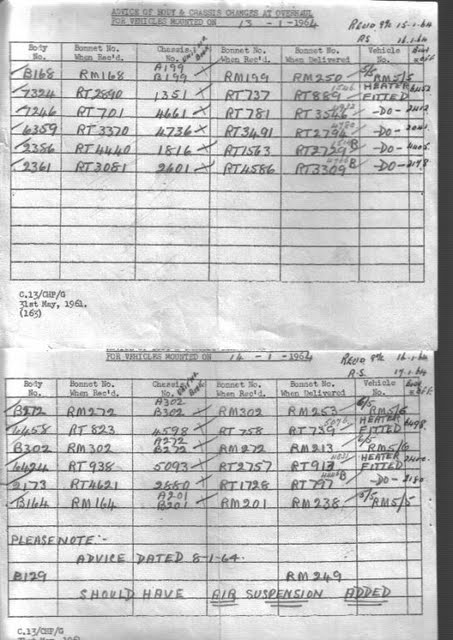 ADVICE OF BODY & CHASSIS CHANGES AT OVERHAUL
FOR VEHICLES MOUNTED ON 13 - 1 - 1964
RECVD 15-1-64
R.S. 16.1.64
Body No. Bonnet No. When Rec'd. Chassis No. Bonnet No. When Rec'd. Bonnet No. When Delivered Vehicle No.
B168 RM168 A199 B199 RM199 RM250 5/5 RM5/5
7324 RT2890 1351 RT737 RT889 HEATER FITTED
7246 RT701 4661 RT781 RT3546 -DO-
6359 RT3370 4736 RT3491 RT2794 -DO-
2386 RT4440 1816 RT1563 RT2729 -DO-
2361 RT3081 2601 RT4586 RT3309 -DO-
C.13/CHP/G
31st May, 1961.
(165)
FOR VEHICLES MOUNTED ON 14 - 1 - 1964
RECVD 16.1.64
R.S. 17.1.64
Body No. Bonnet No. When Rec'd. Chassis No. Bonnet No. When Rec'd. Bonnet No. When Delivered Vehicle No.
B272 RM272 A302 B302 RM302 RM253 6/5 RM5/6
6458 RT823 4598 RT758 HEATER FITTED
B302 RM302 A272 B272 RM272 RM213 6/5 RM5/6
6424 RT938 5093 RT2757 RT913 HEATER FITTED
2173 RT4621 2680 RT1728 RT797 -DO-
B164 RM164 A201 B201 RM201 RM238 5/5 RM5/5
PLEASE NOTE:-
ADVICE DATED 8-1-64.
B129 RM249
SHOULD HAVE AIR SUSPENSION ADDED
C.13/CHP/G